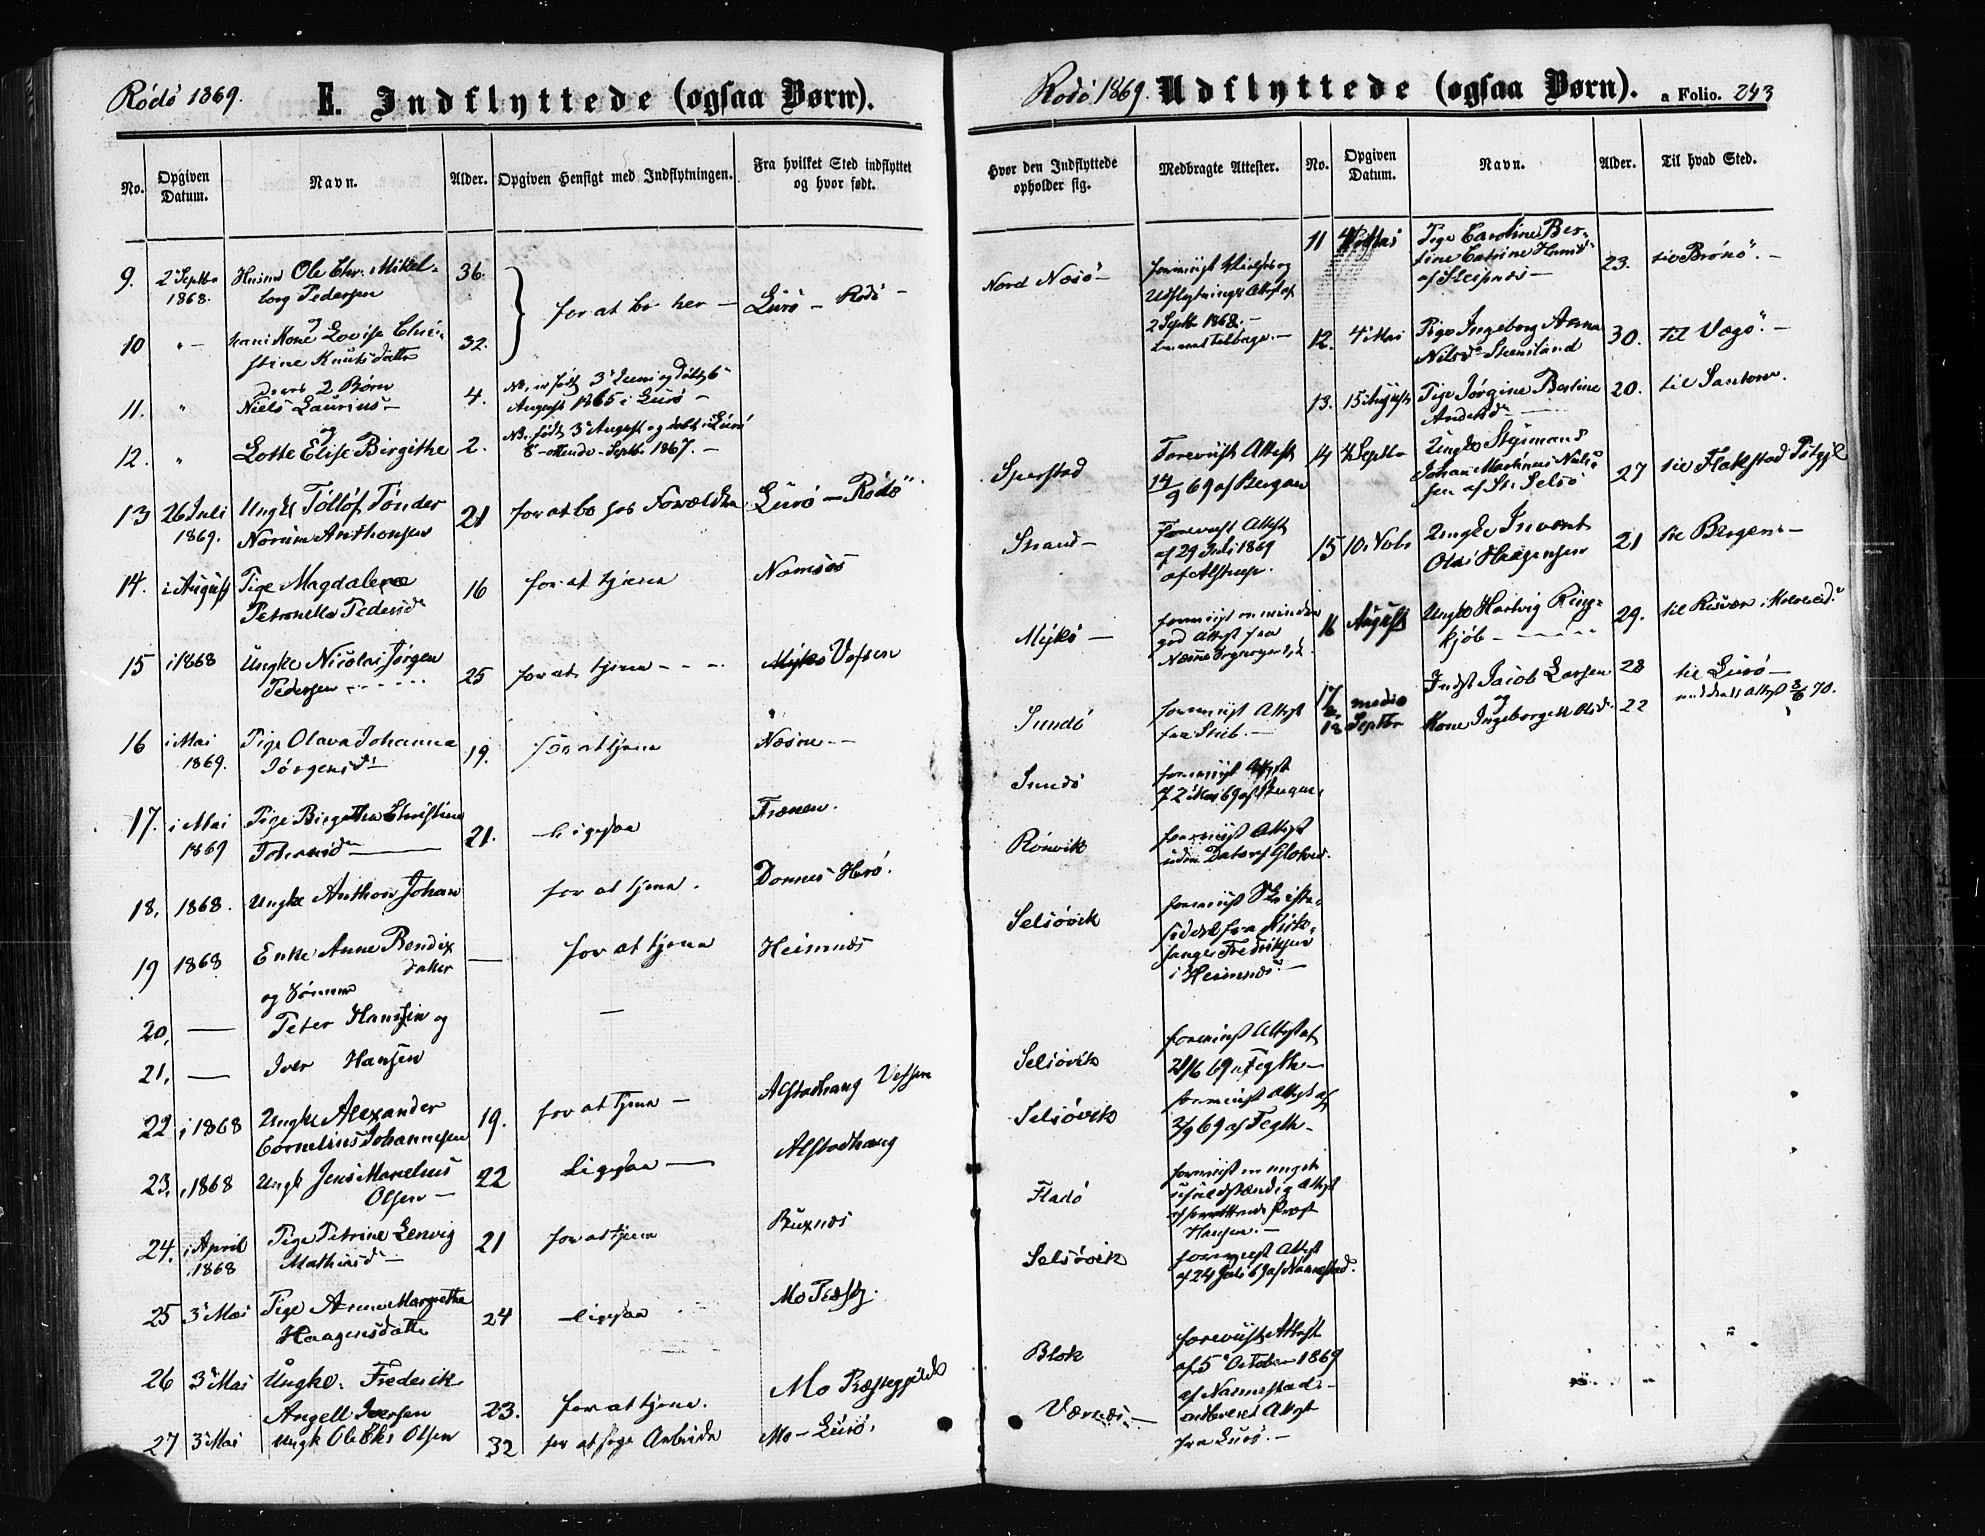 Rödö 1869.
E. Indflyttede (ogsaa Børn).
No.
Opgiven Datum.
Navn.
Alder.
Opgiven Hensigt med Indflytningen.
Fra hvilket Sted indflyttet og hvor født.
9. 2 Septbr Husmd Ole Chr. Mikel- 36.
1868. borg Pedersen
for at bo her — Lurö — Rödö —
og
10 " — hans Kone Lovise Chri- 32.
stine Knutsdatter
deres 2 Børn
11. " Niels Laurius — 4. No. er født 3 Juni og døbt 6
August 1865 i Lurö —
og
12. " Lotte Elise Birgithe 2. født 3 August og døbt i Lurö
8 Septbr 1867. —
13 26 Juli Ungk Tölløf Tønder 21 for at bo hos Forældre Lurö — Rödö
1869. Norum Anthonsen
14. i August Pige Magdalena 16 for at tjene Namsos
Petronella Pedersd
15 i 1868 Ungke Nicolai Jørgen 25 for at tjene - - - Vefsen
Pedersen
16 i Mai Pige Olava Johanna 19. for at tjene Næsne —
1869. Jörgensd
17. i Mai Pige Birgitha Christine 21. Ligesaa Trænen.
1869 Johansd
18. 1868. Ungke Anthon Johan — for at tjene. Dønnes Herö.
19 1868 Enke Anne Bendix — for at tjene Heimnæs
datter
og Sønner
20. — Peter Hansen og —
21. — Iver Hansen
22. i 1868 Ungke Alexander 19. for at tjene — Alstadhaug Vefsen
Cornelius Johannesen
23. i 1868 Ungk Jens Marelius 22 Ligesaa — Alstadhaug
Olsen —
24. i April Pige Petrine Lenvig 21 for at tjene Buxnæs
1868 Mathiasd —
25 3 Mai Pige Anne Margretha 24 Ligesaa Mo Præstg.
Haagensdatter
26 3 Mai Ungke. Frederik
Angell Iversen 23. for at tjene. Mo Præstegjeld
27 3 Mai Ungk Ole Olsen 32 for at søge Arbeide Mo — Lurö.
Rödö 1869.
Udflyttede (ogsaa Børn).
a Folio. 243
Hvor den Indflyttede opholder sig.
Medbragte Attester.
No.
Opgiven Datum.
Navn.
Alder.
Til hvad Sted.
Nord Næsö —
forevist og
Udflytnings Attest af
2 Septbr 1868. —
tilbage. —
Sperstad
Forevist Attest
14/9 69 af Bergan
Strand —
Forevist Attest
af 29 Juli 1869
af Alstrup.
Mykö —
forevist en mindre
god Attest fra
Næsne
Sundö
forevist Attest
fra —
Sundö
forevist Attest
2 Mai 69 af
Rönvik
forevist Attest
uden Dato af
Selsövik
forevist
fra Kirke-
sanger Fredriksen
i Heimnæs —
Selsövik
forevist Attest af
69 af Fegth —
Selsövik
forevist Attest af
2/9 69 af Fegth —
Fladö
forevist en
ufuldstændig Attest
af Præst
Hansen. —
Selsövik
forevist Attest
af 24 Juli 69 af Nannestad.
Blok
forevist Attest
af 5 October 1869
af Nannestad —
Værnæs —
Attest
fra Lurö. —
11 Mai Pige Caroline Ber- 23. til Brönö. —
tine Catrine Hansd
af Sleipnæs —
12. 4 Mai Pige Ingeborg Anna 30. til Vegö. —
Nilsd Steensland
13. 15 August Pige Jörgine Bertine 20. til
Andersd —
14 Septbr Ungke Styrmand 27 til Flakstad Pstgjl
Johan Martinus Nil-
sen af St. Selsö
15 10. Novbr Ungke 21 til Bergen —
Olai Haagensen
16 August Ungke Hartvig Ring- 29. til Risvær i Kolvereid
kjöb —
17 medio Indst Jacob Larsen 28 til Lurö —
& og med Attest 70.
18 Septbr Kone Ingeborg Olsd 22